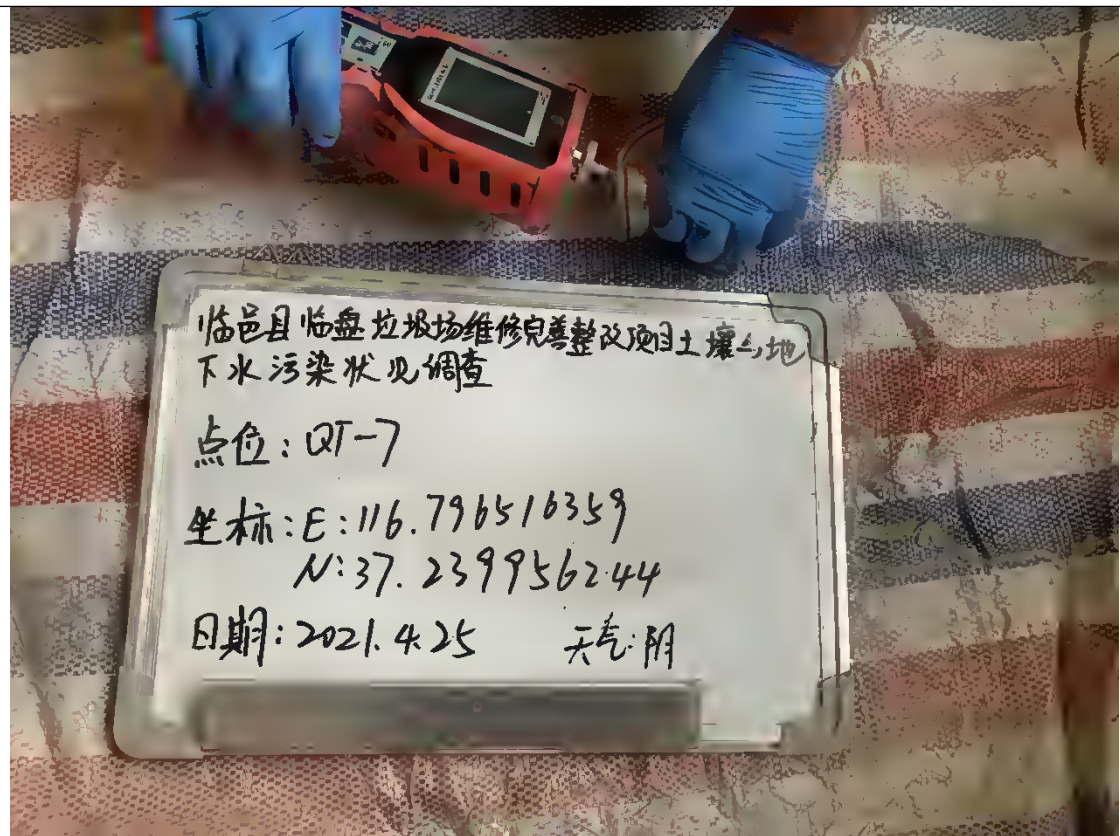 临邑县临盘垃圾场维修完善整改项目土壤与地
下水污染状况调查
点位：QT-7
坐标：E：116.796516359
N：37.239956244
日期：2021.4.25 天气：阴